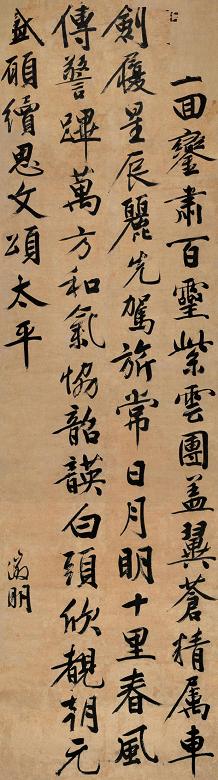 一回鑾肅百靈紫雲團蓋翼蒼精属車
劍履星辰麗先駕旂常日月明十里春風
傳警蹕萬方和氣協韶韺白頭欣覩朝元
盛願續思文頌太平
徵明